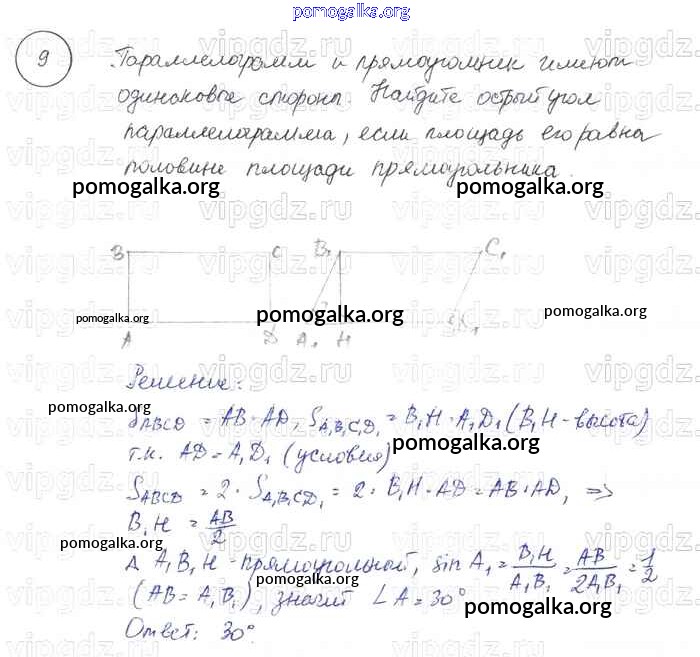 pomogalka.org
9
Параллелограмм и прямоугольник имеют
одинаковые стороны. Найдите острый угол
параллелограмма, если площадь его равна
половине площади прямоугольника.
pomogalka.org pomogalka.org
B C B₁ C₁
pomogalka.org pomogalka.org pomogalka.org
A D A₁ H
Решение:
pomogalka.org
S_ABCD = AB·AD, S_A₁B₁C₁D₁ = B₁H·A₁D₁ (B₁H - высота)
т.к. AD = A₁D₁ (условия) pomogalka.org
S_ABCD = 2·S_A₁B₁C₁D₁ = 2·B₁H·AD = AB·AD, =>
pomogalka.org
B₁H = AB/2
pomogalka.org
Δ A₁B₁H - прямоугольной, sin A₁ = B₁H/A₁B₁ = AB/2A₁B₁ = 1/2
pomogalka.org
(AB = A₁B₁), значит ∠A = 30°
pomogalka.org
Ответ: 30°.
vipgdz.ru